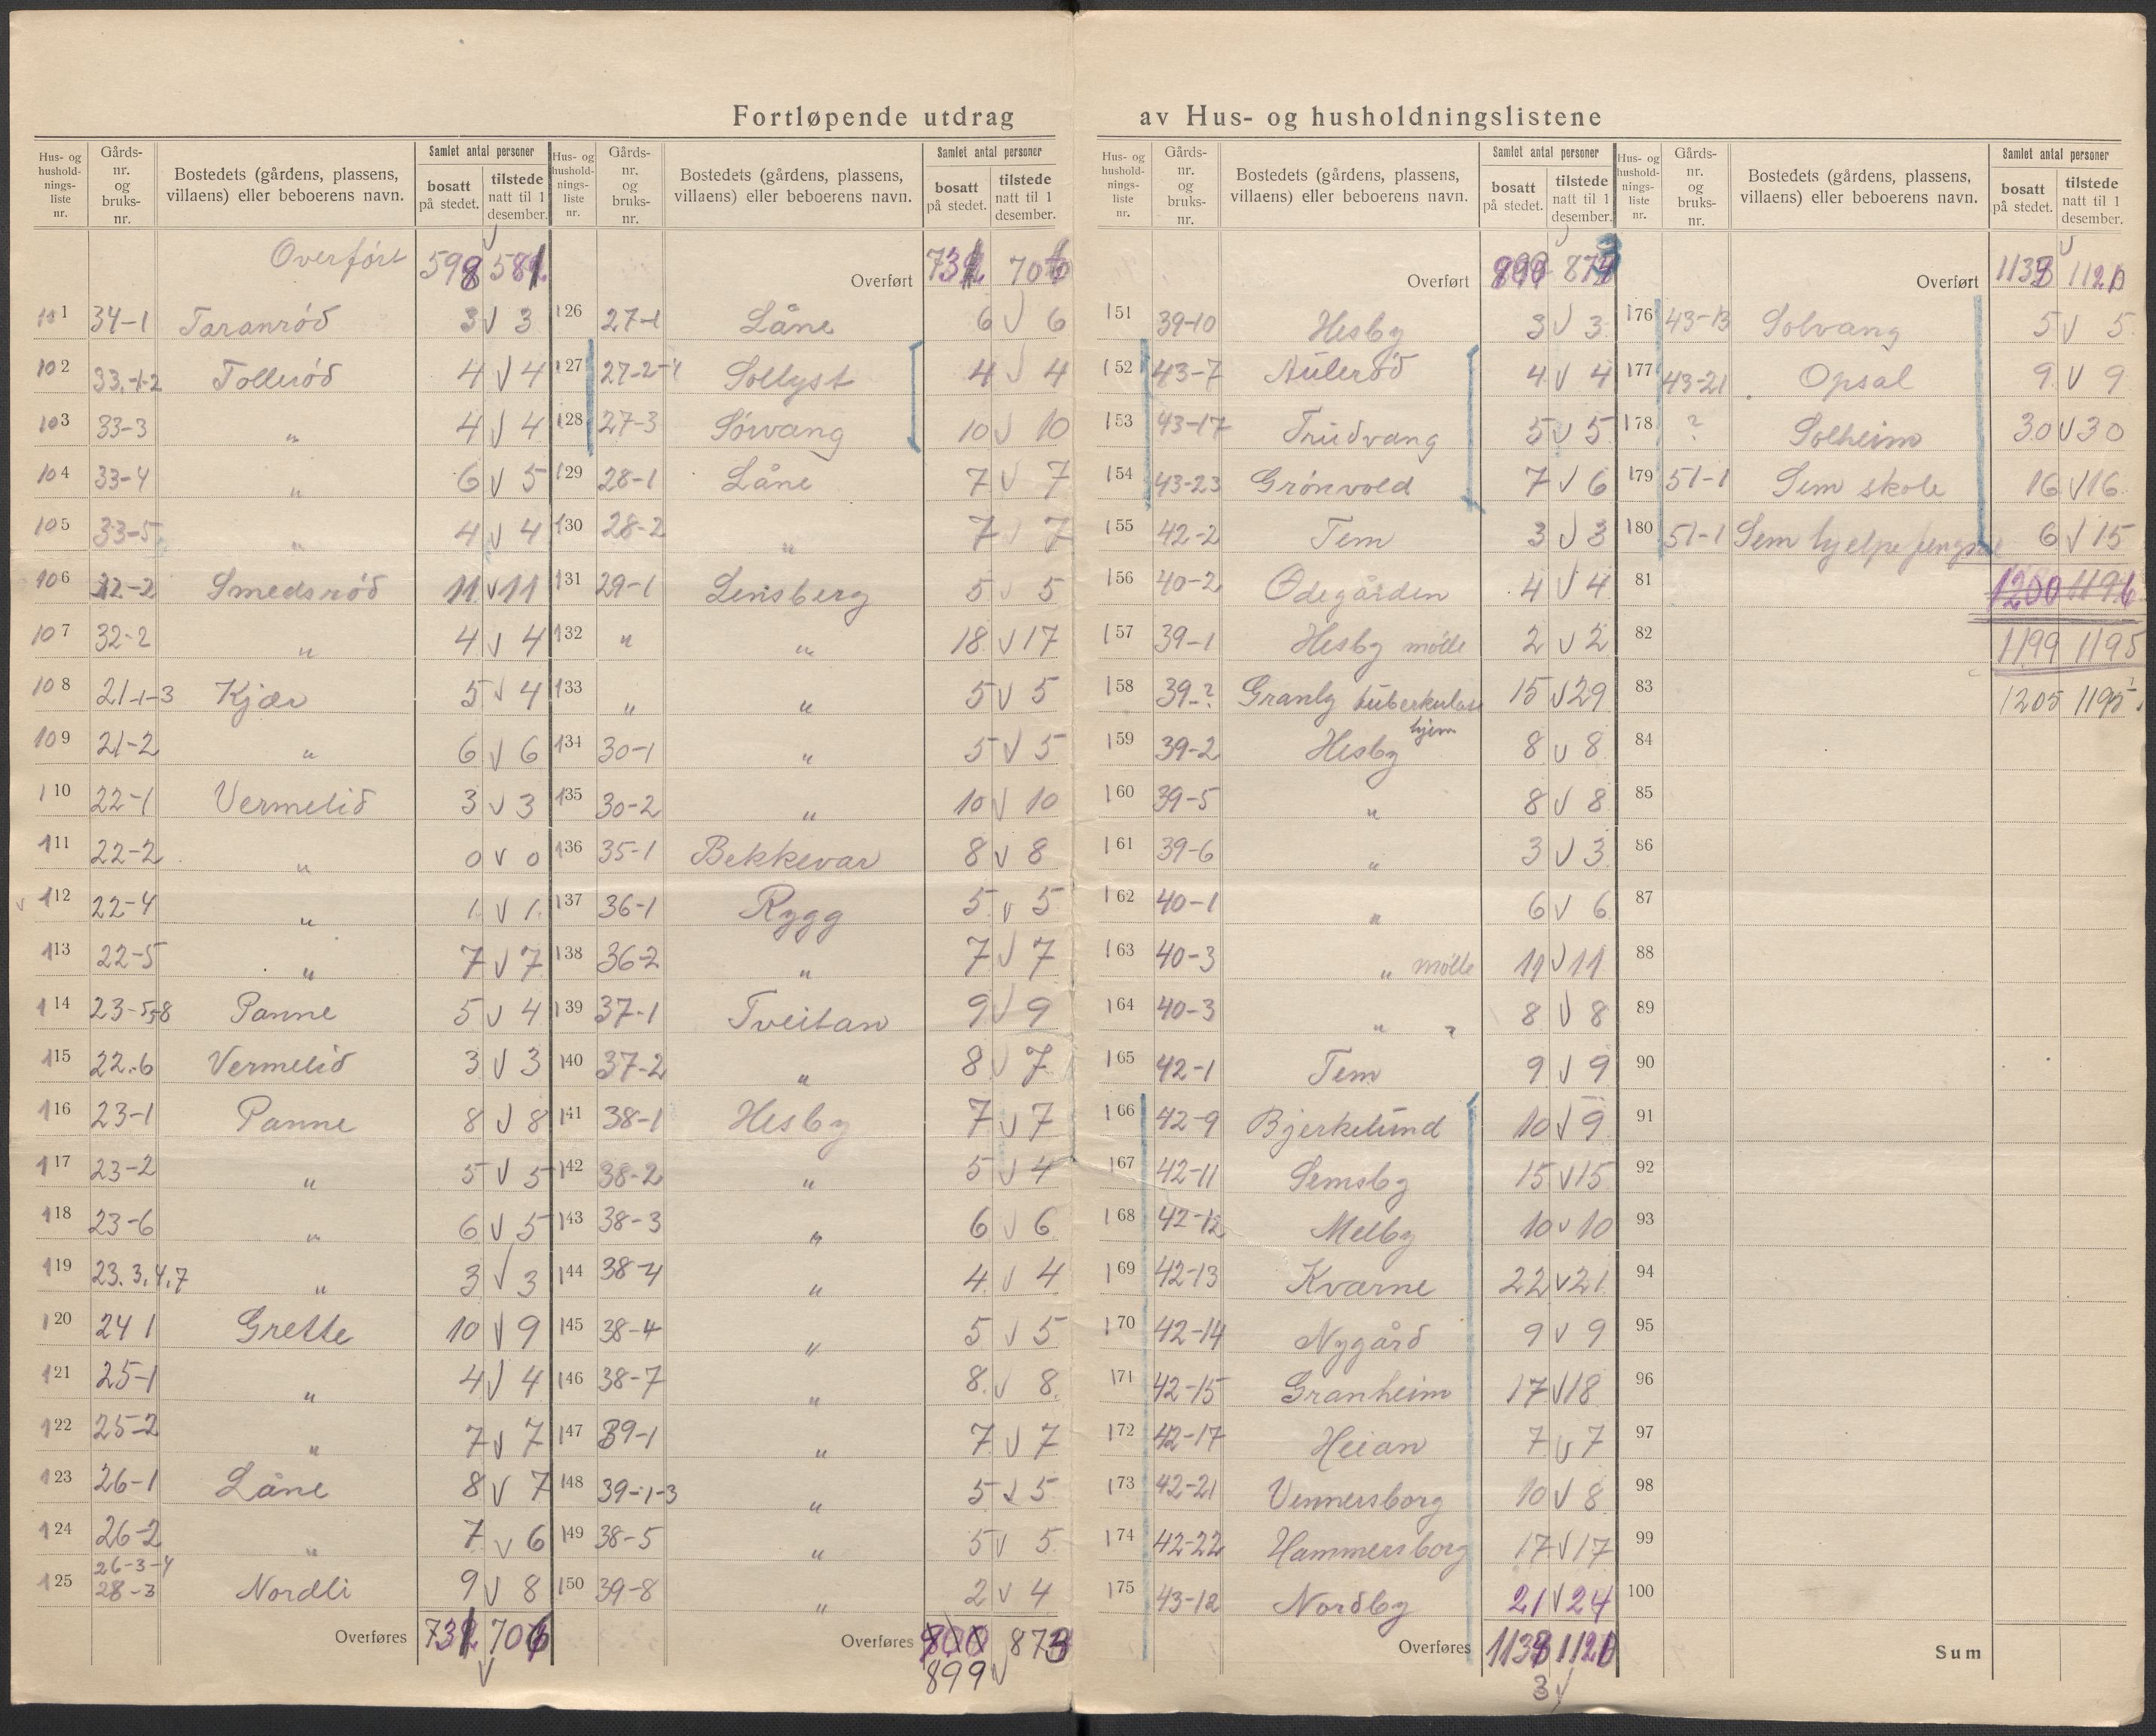 Fortløpende utdrag av Hus- og husholdningslistene
Hus- og hushold-nings-liste nr. Gårds-nr. og bruks-nr. Bostedets (gårdens, plassens, villaens) eller beboerens navn. Samlet antal personer bosatt på stedet. tilstede natt til 1 desember.
Overført
101 34-1 Taranrød 3 v 3
102 33.-1-2 Tollerød 4 v 4
103 33-3 " 4 v 4
104 33-4 " 6 v 5
105 33-5 " 4 v 4
106 32-2 Smedsrød 11 v 11
107 32-2 " 4 v 4
108 21-1-3 Kjær 5 v 4
109 21-2 " 6 v 6
110 22-1 Vermelid 3 v 3
111 22-2 " 0 v 0
112 22-4 " 1 v 1
113 22-5 " 7 v 7
114 23-5,8 Panne 5 v 4
115 22.6 Vermelid 3 v 3
116 23-1 Panne 8 v 8
117 23-2 " 5 v 5
118 23-6 " 6 v 5
119 23.3,4,7 " 3 v 3
120 24 1 Grette 10 v 9
121 25-1 " 4 v 4
122 25-2 " 7 v 7
123 26-1 Låne 8 v 7
124 26-2 " 7 v 6
125 26-3-4 28-3 Nordli 9 v 8
Overføres
Hus- og hushold-nings-liste nr. Gårds-nr. og bruks-nr. Bostedets (gårdens, plassens, villaens) eller beboerens navn. Samlet antal personer bosatt på stedet. tilstede natt til 1 desember.
Overført
126 27-1 Låne 6 v 6
127 27-2-4 Sollyst 4 v 4
128 27-3 Sørvang 10 v 10
129 28-1 Låne 7 v 7
130 28-2 " 7 v 7
131 29-1 Lensberg 5 v 5
132 " " 18 v 17
133 " " 5 v 5
134 30-1 " 5 v 5
135 30-2 " 10 v 10
136 35-1 Bekkevar 8 v 8
137 36-1 Rygg 5 v 5
138 36-2 " 7 v 7
139 37-1 Tveitan 9 v 9
140 37-2 " 8 v 7
141 38-1 Hesby 7 v 7
142 38-2 " 5 v 4
143 38-3 " 6 v 6
144 38-4 " 4 v 4
145 38-4 " 5 v 5
146 38-7 " 8 v 8
147 39-1 " 7 v 7
148 39-1-3 " 5 v 5
149 38-5 " 5 v 5
150 39-8 " 2 v 4
Overføres 873
899 v
Hus- og hushold-nings-liste nr. Gårds-nr. og bruks-nr. Bostedets (gårdens, plassens, villaens) eller beboerens navn. Samlet antal personer bosatt på stedet. tilstede natt til 1 desember.
Overført
151 39-10 Hesby 3 v 3
152 43-7 Aulerød 4 v 4
153 43-17 Trudvang 5 v 5
154 43-23 Grønvold 7 v 6
155 42-2 Tem 3 v 3
156 40-2 Ødegården 4 v 4
157 39-1 Hesby mølle 2 v 2
158 39-? Granly tuberkulose hjem 15 v 29
159 39-2 Hesby 8 v 8
160 39-5 " 8 v 8
161 39-6 " 3 v 3
162 40-1 " 6 v 6
163 40-3 " mølle 11 v 11
164 40-3 " " 8 v 8
165 42-1 Tem 9 v 9
166 42-9 Bjerkelund 10 v 9
167 42-11 Semsby 15 v 15
168 42-12 Melby 10 v 10
169 42-13 Kvarne 22 v 21
170 42-14 Nygård 9 v 9
171 42-15 Granheim 17 v 18
172 42-17 Heian 7 v 7
173 42-21 Vennersborg 10 v 8
174 42-22 Hammersborg 17 v 17
175 43-12 Nordby 21 v 24
Overføres
3 v
Hus- og hushold-nings-liste nr. Gårds-nr. og bruks-nr. Bostedets (gårdens, plassens, villaens) eller beboerens navn. Samlet antal personer bosatt på stedet. tilstede natt til 1 desember.
Overført
176 43-13 Solvang 5 v 5
177 43-21 Opsal 9 v 9
178 ? Solheim 30 v 30
179 51-1 Sem skole 16 v 16
180 51-1 Sem hjelpefengsel 6 v 15
81 1200 1196
82 1199 1195
83 1205 1195
84
85
86
87
88
89
90
91
92
93
94
95
96
97
98
99
100
Sum